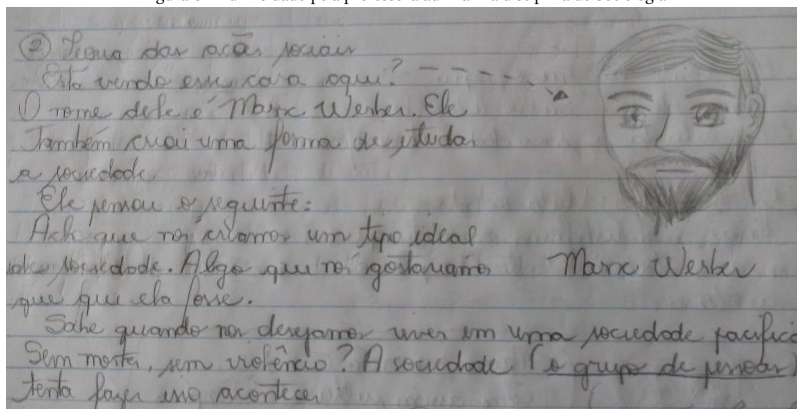 ② Teoria das ações sociais
Está vendo esse cara aqui?
O nome dele é Marx Werber. Ele
Também criou uma forma de estudar
a sociedade
Ele pensou o seguinte:
Acho que nós criamos um tipo ideal
de sociedade. Algo que nós gostariamos
que que ela fosse.
Marx Werber
Sabe quando nós desejamos viver em uma sociedade pacífica
Sem mortes, sem violência? A sociedade (o grupo de pessoas)
tenta fazer isso acontecer